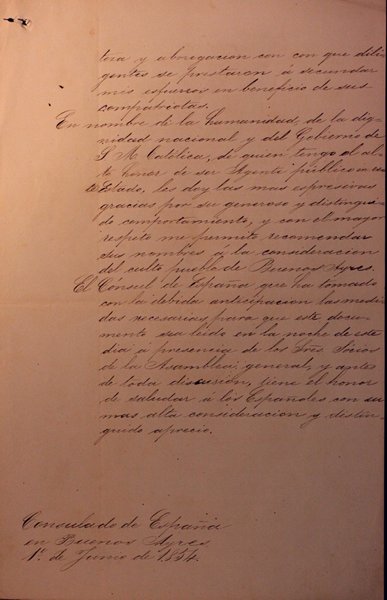 teza y abnegacion con con que dili-
gentes se prestaran á secundar
mis esfuerzos en beneficio de sus
compatriotas.
En nombre de la humanidad, de la dig-
nidad nacional y del Gobierno de
S. M. Católica, de quien tengo el al-
to honor de ser Agente público en es-
te Estado, les doy las mas espresivas
gracias por su generoso y distingui-
do comportamiento, y con el mayor
respeto me permito recomendar
sus nombres á la consideracion
del culto pueblo de Buenos Ayres.
El Cónsul de España que ha tomado
con la debida anticipacion las medi-
das necesarias para que este docu-
mento sea leido en la noche de este
dia á presencia de los Sres Socios
de la Asamblea general, y antes
de toda discusion, tiene el honor
de saludar á los Españoles con su
mas alta consideracion y distin-
guido aprecio.
Consulado de España
en Buenos Ayres
1º de Junio de 1854.